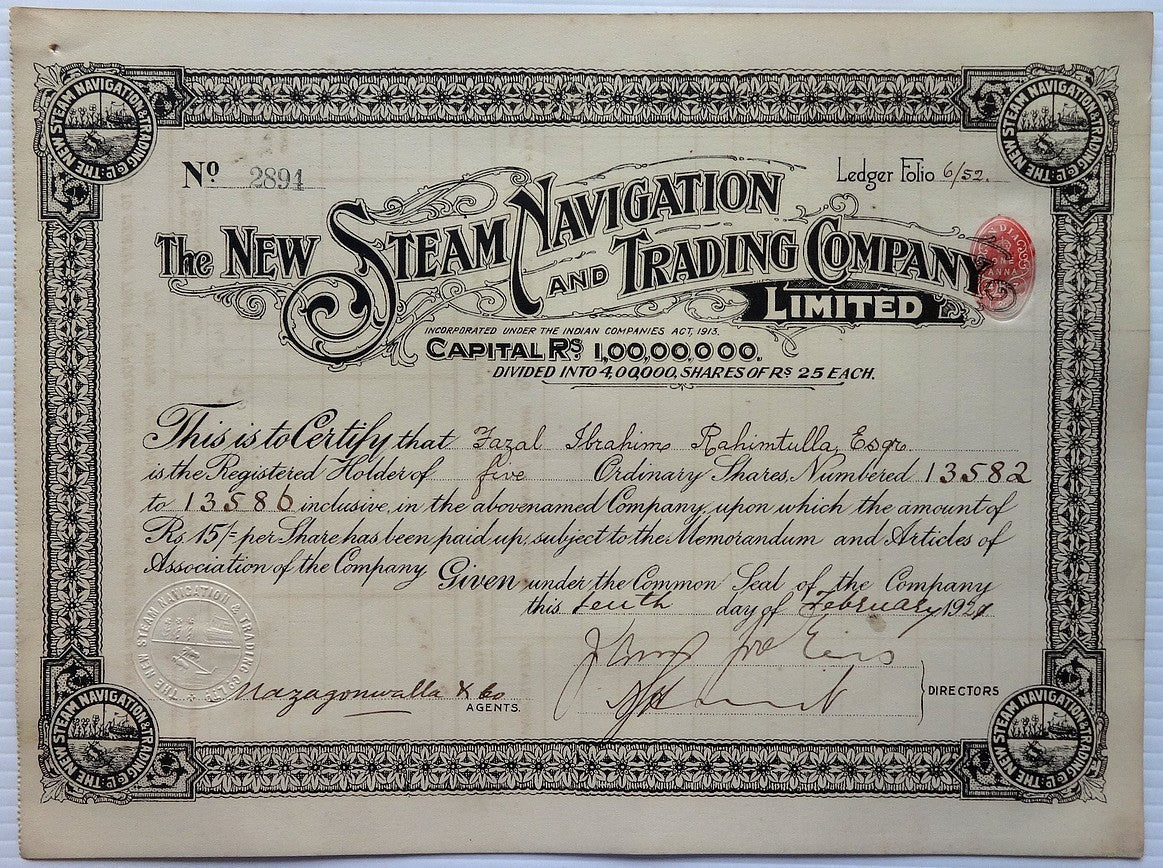 THE NEW STEAM NAVIGATION & TRADING Co. LD.
THE NEW STEAM NAVIGATION & TRADING Co. LD.
No 2894
Ledger Folio 6/52.
The NEW STEAM NAVIGATION
AND TRADING COMPANY
LIMITED
INDIA
ONE
ANNA
INCORPORATED UNDER THE INDIAN COMPANIES ACT, 1913.
CAPITAL Rs 1,00,00,000.
DIVIDED INTO 4,00,000, SHARES OF Rs 25 EACH.
This is to Certify that Fazal Ibrahim Rahimtulla, Esqr.
is the Registered Holder of five Ordinary Shares, Numbered 13582
to 13586 inclusive, in the abovenamed Company, upon which the amount of
Rs. 15/= per Share has been paid up, subject to the Memorandum and Articles of
Association of the Company Given under the Common Seal of the Company
this tenth day of February, 192
THE NEW STEAM NAVIGATION & TRADING Co. LTD.
Mazagonwalla & Co
AGENTS.
DIRECTORS
THE NEW STEAM NAVIGATION & TRADING Co. LD.
THE NEW STEAM NAVIGATION & TRADING Co. LD.